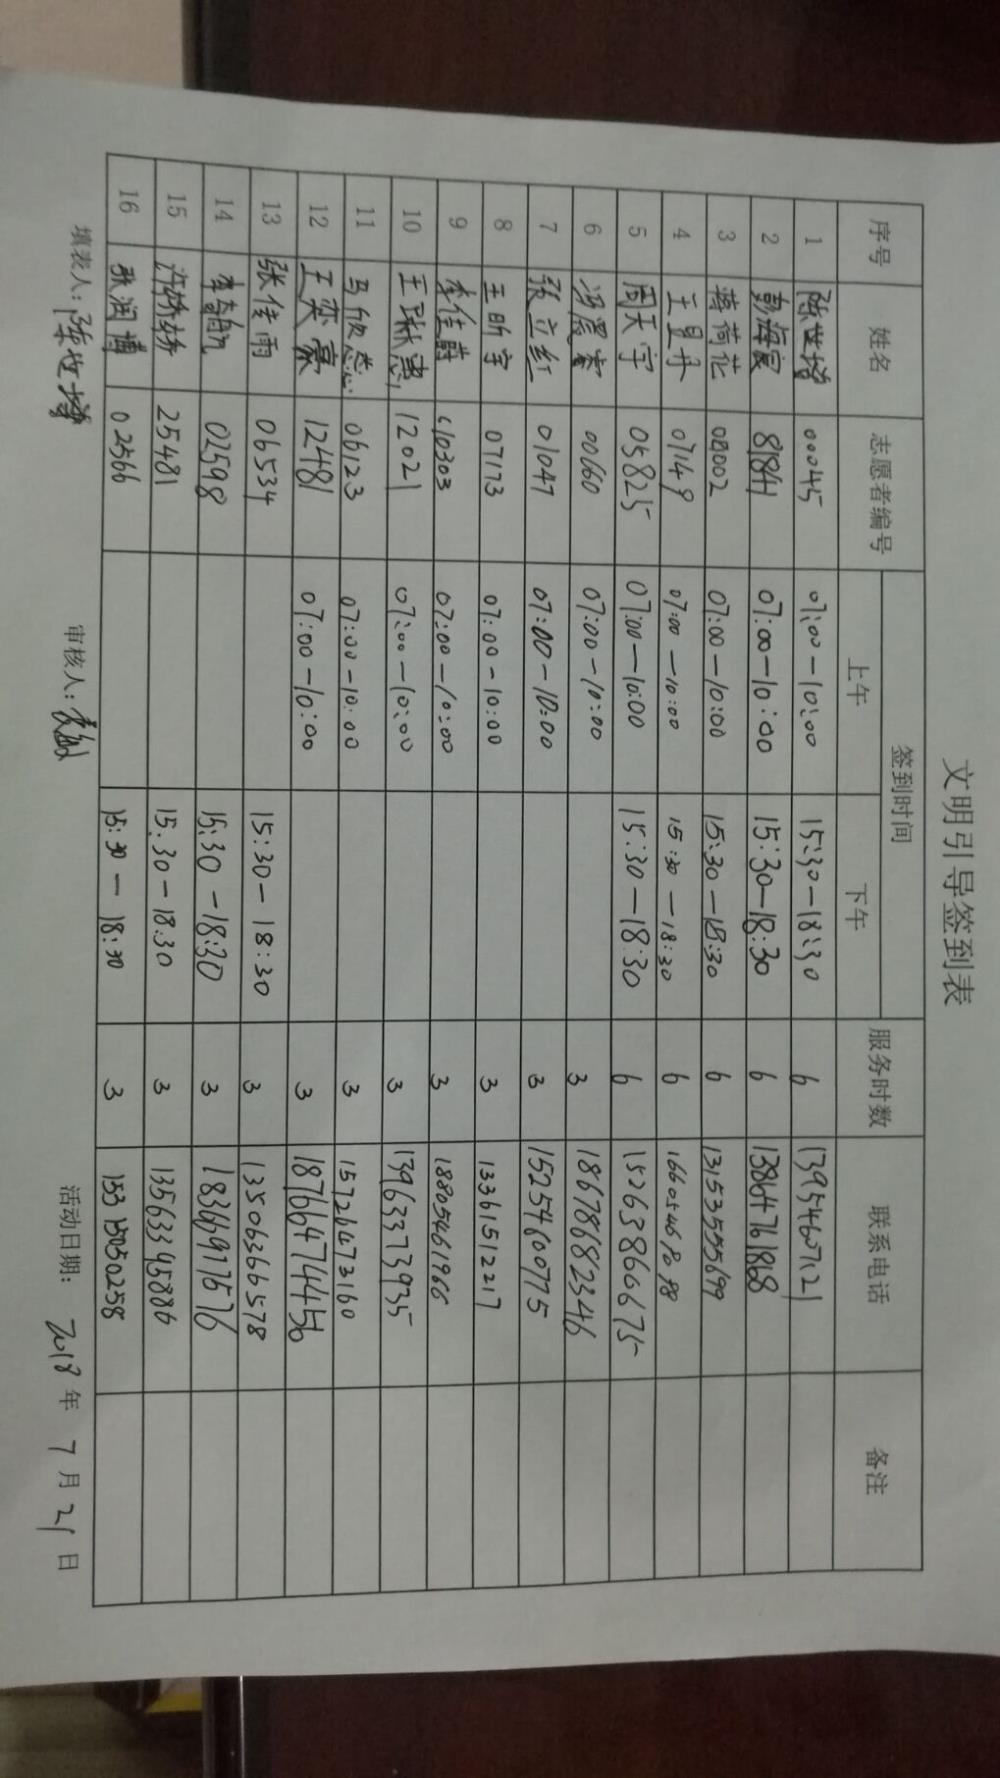 文明引导签到表
序号 姓名 志愿者编号 签到时间 服务时数 联系电话 备注
上午 下午
1 陈世增 00045 07:00-10:00 15:30-18:30 6 13954607121
2 彭海宾 81841 07:00-10:00 15:30-18:30 6 13864761868
3 蒋荷花 00002 07:00-10:00 15:30-18:30 6 13153555699
4 王昱丹 07149 07:00-10:00 15:30-18:30 6
5 周天宇 05825 07:00-10:00 15:30-18:30 6 15263866675
6 0060 07:00-10:00 3 18678682346
7 张立红 01047 07:00-10:00 3 15254600775
8 王昕宇 07173 07:00-10:00 3 13361512217
9 李佳蔚 010303 07:00-10:00 3 18805461966
10 王琳惠 12021 07:00-10:00 3 13963373935
11 马欣蕊 06123 07:00-10:00 3 15726473160
12 王奕豪 12481 07:00-10:00 3 18766474456
13 张佳雨 06534 15:30-18:30 3 13506366578
14 02598 15:30-18:30 3 18366917576
15 许娇娇 25481 15:30-18:30 3 13563345886
16 耿润博 02566 15:30-18:30 3 15315050258
填表人:陈世增 审核人: 活动日期: 2018年7月21日